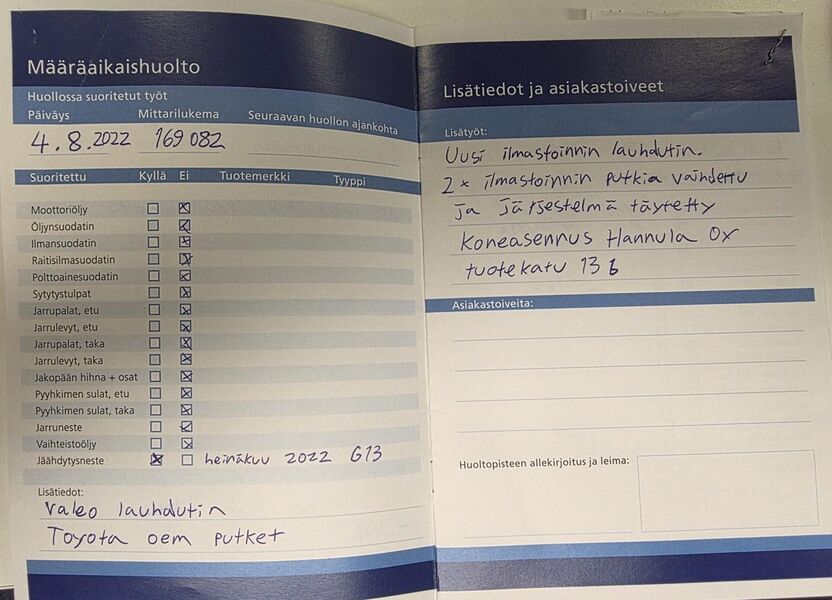 Määräaikaishuolto
Huollossa suoritetut työt
Päiväys Mittarilukema Seuraavan huollon ajankohta
4.8.2022 169 082
Suoritettu Kyllä Ei Tuotemerkki Tyyppi
Moottoriöljy
Öljynsuodatin
Ilmansuodatin
Raitisilmasuodatin
Polttoainesuodatin
Sytytystulpat
Jarrupalat, etu
Jarrulevyt, etu
Jarrupalat, taka
Jarrulevyt, taka
Jakopään hihna + osat
Pyyhkimen sulat, etu
Pyyhkimen sulat, taka
Jarruneste
Vaihteistoöljy
Jäähdytysneste heinäkuu 2022 G13
Lisätiedot:
Valeo lauhdutin
Toyota oem putket
Lisätiedot ja asiakastoiveet
Lisätyöt:
Uusi ilmastoinnin lauhdutin.
2x ilmastoinnin putkia vaihdettu
ja järjestelmä täytetty
Koneasennus Hannula Oy
tuotekatu 13 b
Asiakastoiveita:
Huoltopisteen allekirjoitus ja leima: